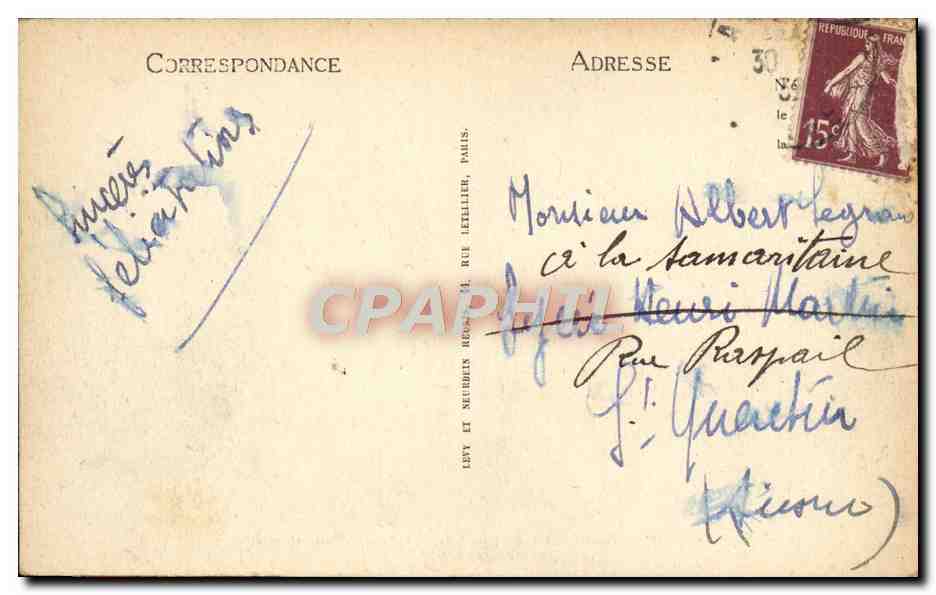 CORRESPONDANCE
ADRESSE
30
RÉPUBLIQUE FRAN
15c
le
la
Sincères
félicitations
LEVY ET NEURDEIN RÉUNIS, 44, RUE LETELLIER, PARIS.
Monsieur Albert Legrand
à la Samaritaine
Lycée Henri Martin
Rue Raspail
St Quentin
(Aisne)
CPAPHIL